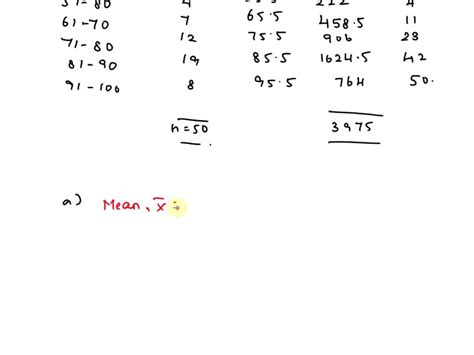 61-70 7 65.5 458.5 11
71-80 12 75.5 906 23
81-90 19 85.5 1624.5 42
91-100 8 95.5 764 50.
n=50 3975
a) Mean, x̄ =